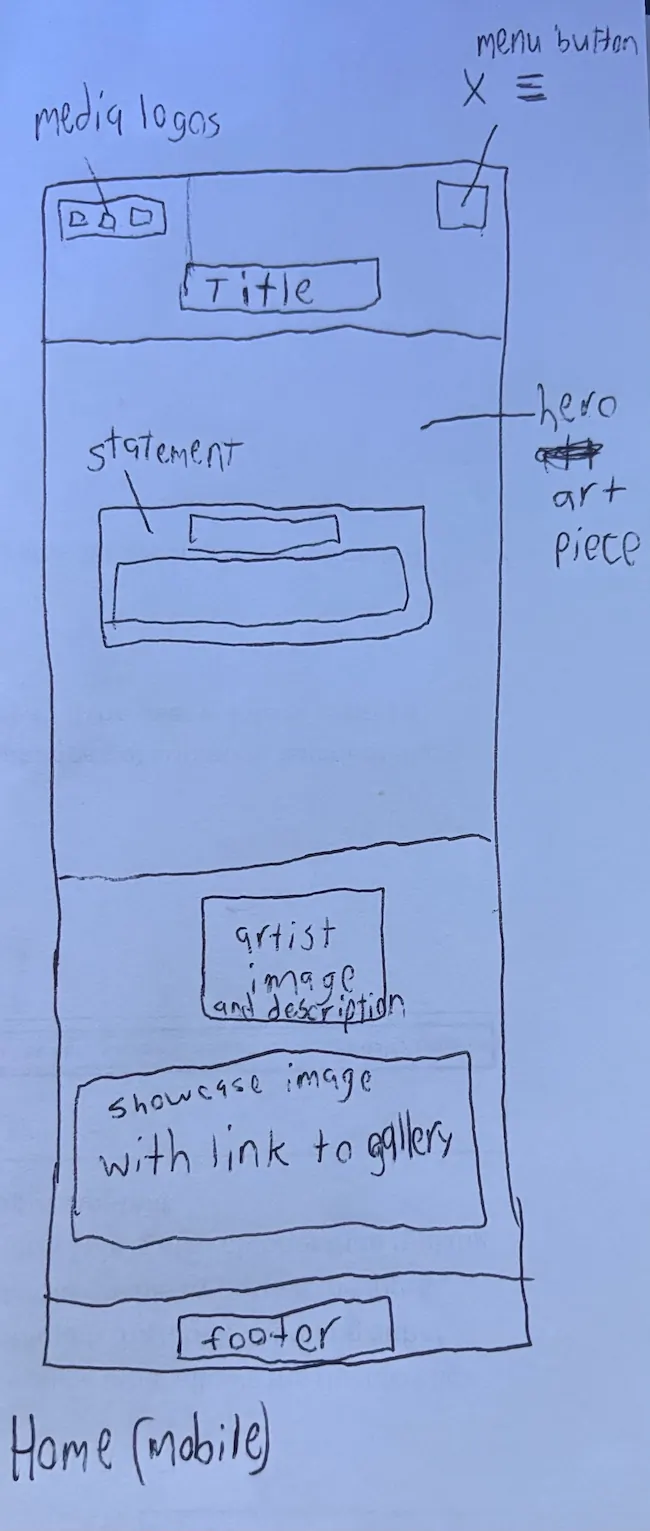 menu button
X ☰
media logos
Title
hero
art
piece
statement
artist
image
and description
showcase image
with link to gallery
footer
Home (mobile)